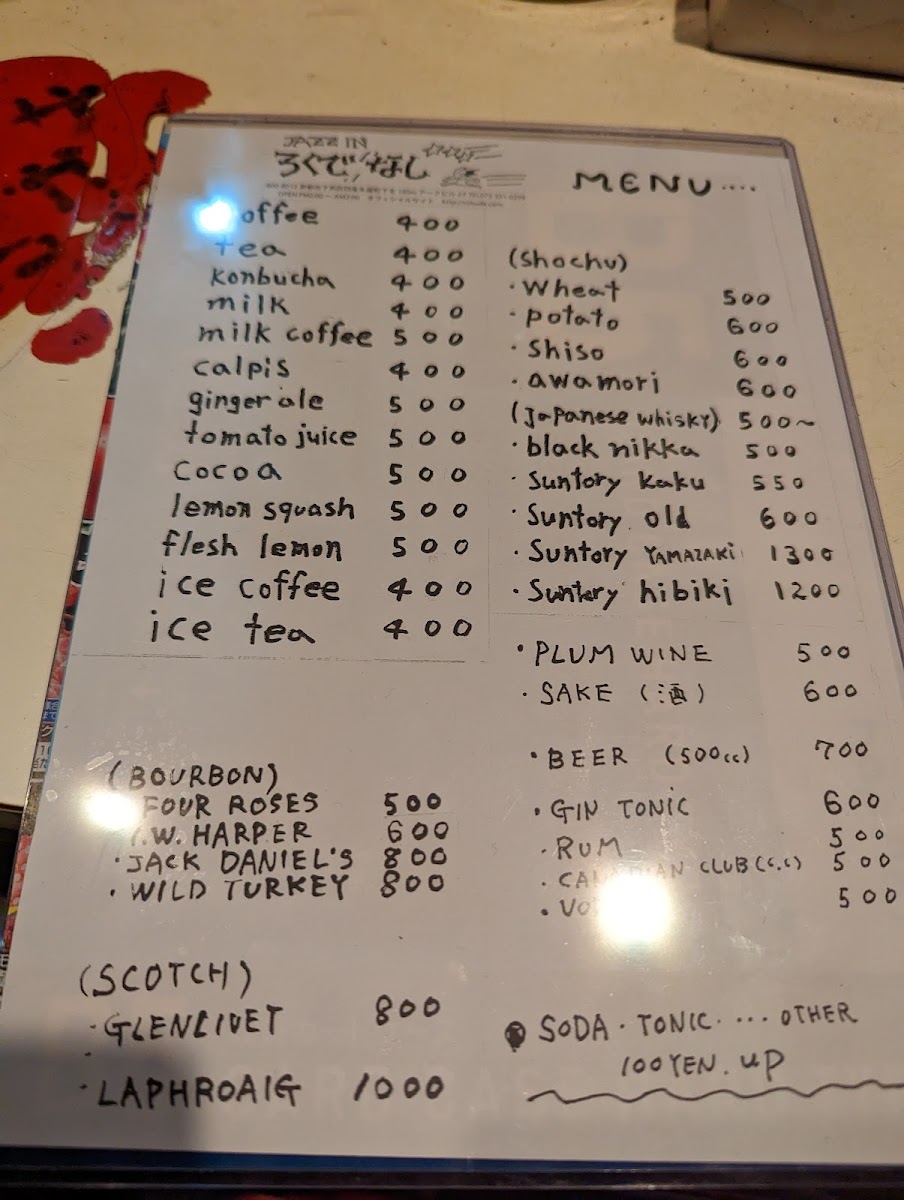 JAZZ IN
ろくでなし
MENU....
offee 400
tea 400
konbucha 400
milk 400
milk coffee 500
calpis 400
ginger ale 500
tomato juice 500
cocoa 500
lemon squash 500
flesh lemon 500
ice coffee 400
ice tea 400
(BOURBON)
FOUR ROSES 500
I.W. HARPER 600
・JACK DANIEL'S 800
・WILD TURKEY 800
(SCOTCH)
・GLENLIVET 800
・LAPHROAIG 1000
(Shochu)
・wheat 500
・potato 600
・Shiso 600
・awamori 600
(Japanese whisky) 500~
・black nikka 500
・Suntory kaku 550
・Suntory old 600
・Suntory YAMAZAKI 1300
・Suntory hibiki 1200
・PLUM WINE 500
・SAKE (酒) 600
・BEER (500cc) 700
・GIN TONIC 600
・RUM 500
・CLUB (C.C) 500
・500
SODA・TONIC・... OTHER
100YEN. UP